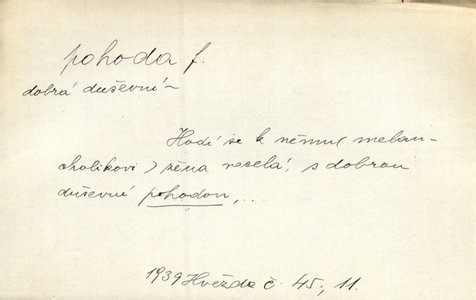 pohoda f.
dobrá duševní ~
Hodí se k němu (melan-
cholikovi) žena veselá, s dobrou
duševní pohodou,..
1939 Hvězda č. 45, 11.